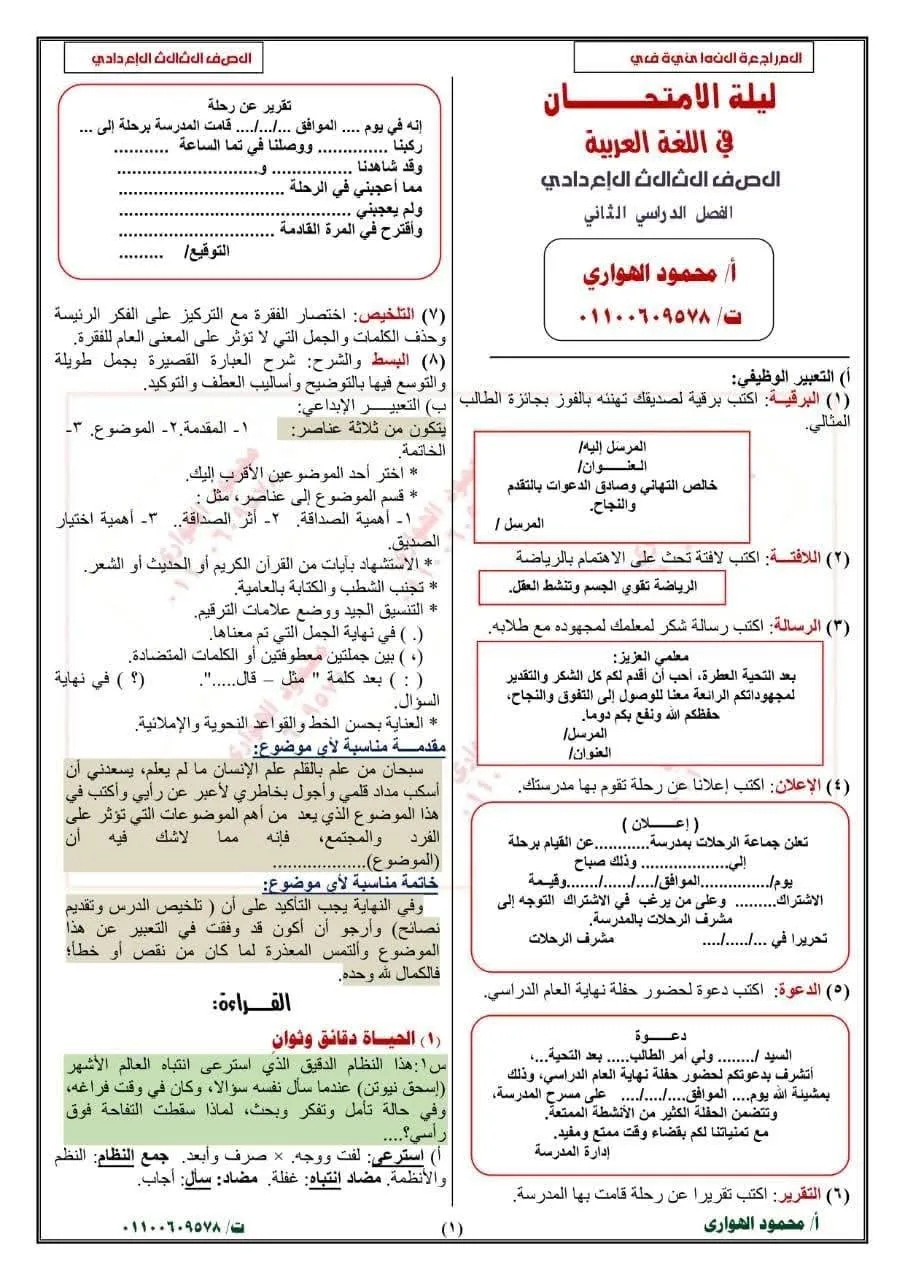 المراجعة النهائية في
الصف الثالث الإعدادي
ليلة الامتحــــــان
في اللغة العربية
الصف الثالث الإعدادي
الفصل الدراسي الثاني
أ/ محمود الهواري
ت/ ٠١١٠٠٦٠٩٥٧٨
أ) التعبير الوظيفي:
(١) البرقيــة: اكتب برقية لصديقك تهنئه بالفوز بجائزة الطالب
المثالي.
المرسَل إليه/
العنـــوان/
خالص التهاني وصادق الدعوات بالتقدم
والنجاح.
المرسل /
(٢) اللافتــة: اكتب لافتة تحث على الاهتمام بالرياضة
الرياضة تقوي الجسم وتنشط العقل.
(٣) الرسالة: اكتب رسالة شكر لمعلمك لمجهوده مع طلابه.
معلمي العزيز:
بعد التحية العطرة، أحب أن أقدم لكم كل الشكر والتقدير
لمجهوداتكم الرائعة معنا للوصول إلى التفوق والنجاح،
حفظكم الله ونفع بكم دوما.
المرسل/
العنوان/
(٤) الإعلان: اكتب إعلانا عن رحلة تقوم بها مدرستك.
( إعـــــلان )
تعلن جماعة الرحلات بمدرسة............عن القيام برحلة
إلي.................. وذلك صباح
يوم/...............الموافق/..../....../.......وقيـمة
الاشتراك......... وعلى من يرغب في الاشتراك التوجه إلى
مشرف الرحلات بالمدرسة.
تحريرا في .../...../.... مشرف الرحلات
(٥) الدعوة: اكتب دعوة لحضور حفلة نهاية العام الدراسي.
دعـــوة
السيد /........ ولي أمر الطالب..... بعد التحية...،
أتشرف بدعوتكم لحضور حفلة نهاية العام الدراسي، وذلك
بمشيئة الله يوم.... الموافق..../..../.... على مسرح المدرسة،
وتتضمن الحفلة الكثير من الأنشطة الممتعة.
مع تمنياتنا لكم بقضاء وقت ممتع ومفيد.
إدارة المدرسة
(٦) التقرير: اكتب تقريرا عن رحلة قامت بها المدرسة.
تقرير عن رحلة
إنه في يوم .... الموافق .../.../.... قامت المدرسة برحلة إلى ...
ركبنا .............. ووصلنا في تما الساعة ...........
وقد شاهدنا ................ و............................
مما أعجبني في الرحلة .................................
ولم يعجبني ..............................................
وأقترح في المرة القادمة ...............................
التوقيع/ .........
(٧) التلخيص: اختصار الفقرة مع التركيز على الفكر الرئيسة
وحذف الكلمات والجمل التي لا تؤثر على المعنى العام للفقرة.
(٨) البسط والشرح: شرح العبارة القصيرة بجمل طويلة
والتوسع فيها بالتوضيح وأساليب العطف والتوكيد.
ب) التعبيــــر الإبداعي:
يتكون من ثلاثة عناصر: ١- المقدمة.٢- الموضوع. ٣-
الخاتمة.
* اختر أحد الموضوعين الأقرب إليك.
* قسم الموضوع إلى عناصر، مثل :
١- أهمية الصداقة. ٢- أثر الصداقة.. ٣- أهمية اختيار
الصديق.
* الاستشهاد بآيات من القرآن الكريم أو الحديث أو الشعر.
* تجنب الشطب والكتابة بالعامية.
* التنسيق الجيد ووضع علامات الترقيم.
(. ) في نهاية الجمل التي تم معناها.
(، ) بين جملتين معطوفتين أو الكلمات المتضادة.
( : ) بعد كلمة " مثل – قال.....". (؟ ) في نهاية
السؤال.
* العناية بحسن الخط والقواعد النحوية والإملائية.
مقدمـــة مناسبة لأي موضوع:
سبحان من علم بالقلم علم الإنسان ما لم يعلم، يسعدني أن
أسكب مداد قلمي وأجول بخاطري لأعبر عن رأيي وأكتب في
هذا الموضوع الذي يعد من أهم الموضوعات التي تؤثر على
الفرد والمجتمع، فإنه مما لاشك فيه أن
(الموضوع)...................
خاتمة مناسبة لأي موضوع:
وفي النهاية يجب التأكيد على أن ( تلخيص الدرس وتقديم
نصائح) وأرجو أن أكون قد وفقت في التعبير عن هذا
الموضوع وألتمس المعذرة لما كان من نقص أو خطأ؛
فالكمال لله وحده.
القــراءة:
(١) الحيـاة دقائق وثوانٍ
س١:هذا النظام الدقيق الذي استرعى انتباه العالم الأشهر
(إسحق نيوتن) عندما سأل نفسه سؤالا، وكان في وقت فراغه،
وفي حالة تأمل وتفكر وبحث، لماذا سقطت التفاحة فوق
رأسي؟....
أ) استرعى: لفت ووجه. × صرف وأبعد. جمع النظام: النظم
والأنظمة. مضاد انتباه: غفلة. مضاد: سأل: أجاب.
أ/ محمود الهوارى
(١)
ت/ ٠١١٠٠٦٠٩٥٧٨